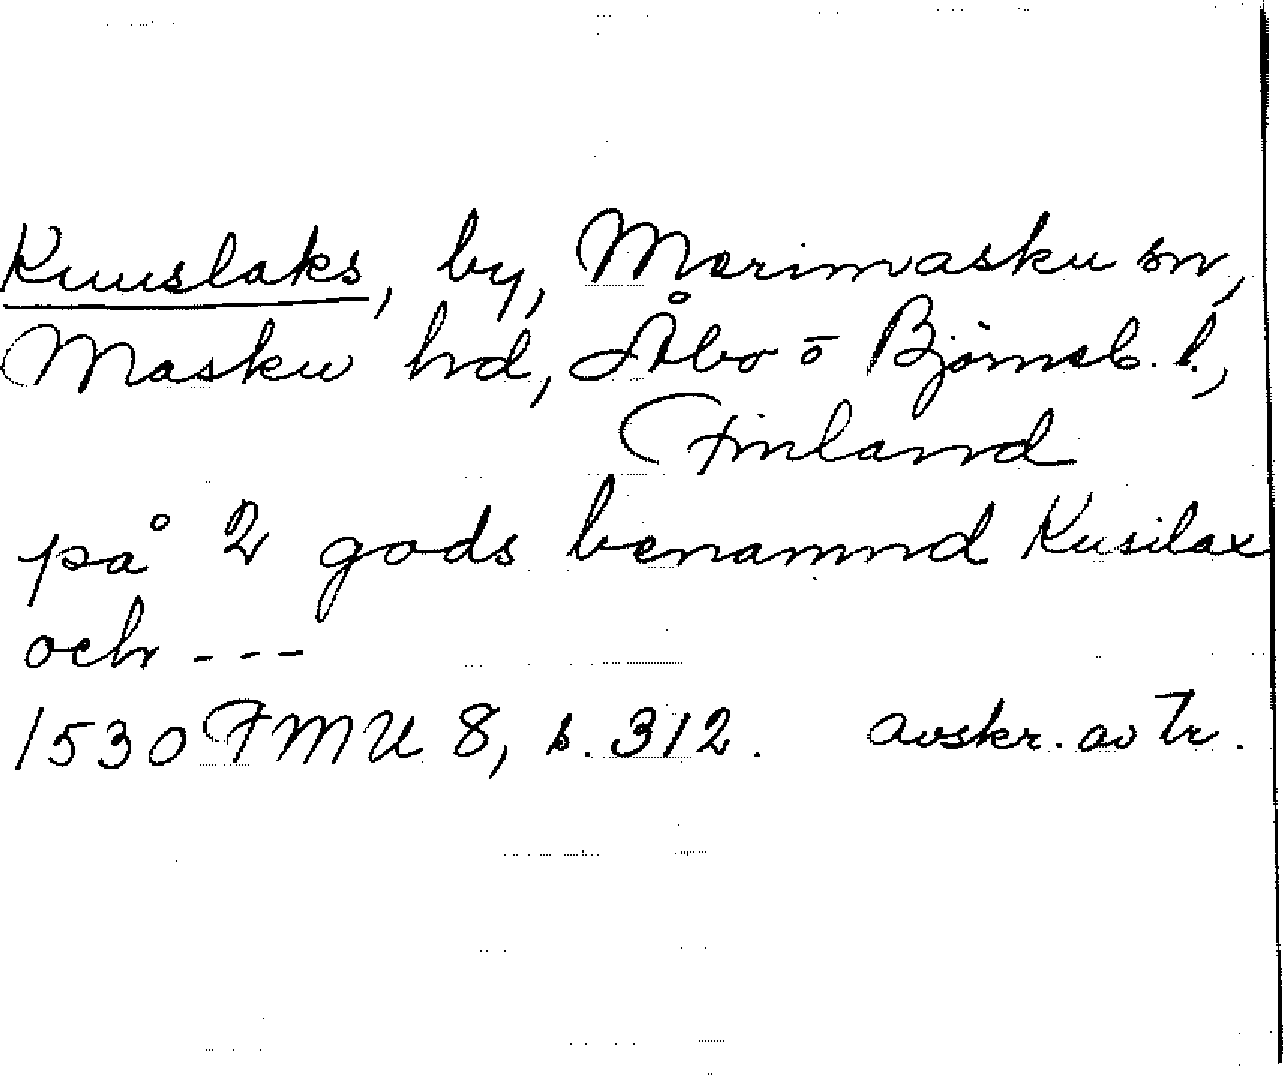 Kuuslaks, by, Merimasku sn,
Masku hd, Åbo o Björneb. l.,
Finland
på 2 gods benamnd Kusilax
och ---
1530 FMU 8, s. 312. avskr. av tr.